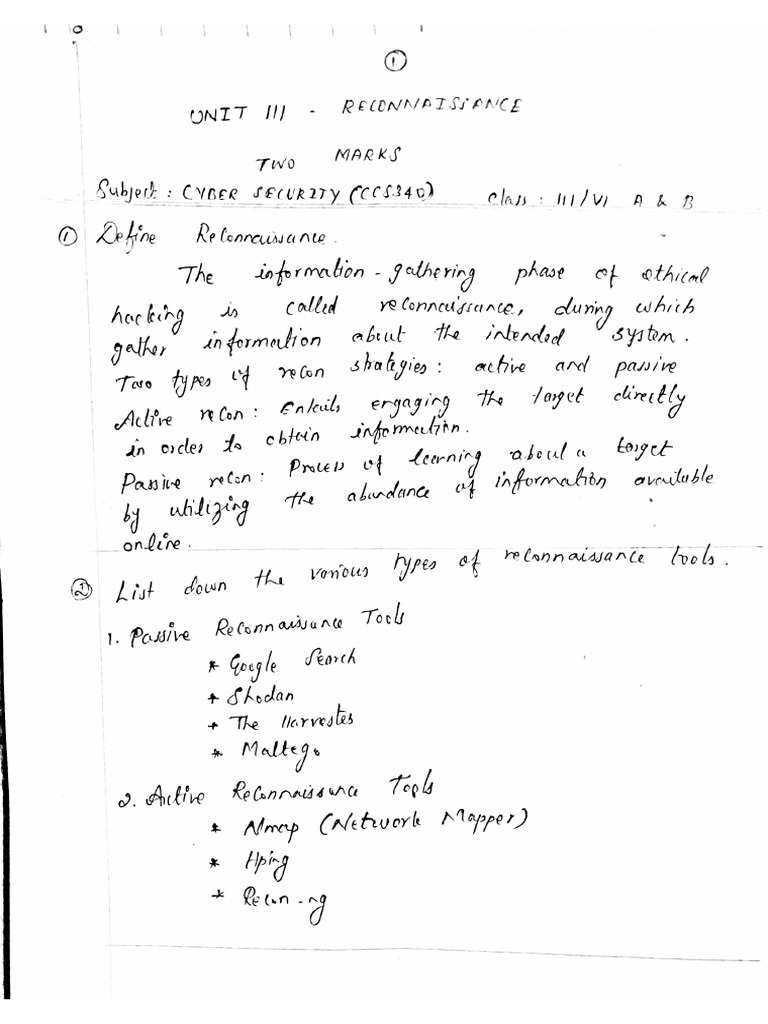 ①
UNIT III - RECONNAISSANCE
TWO MARKS
Subject : CYBER SECURITY (CCS340) Class : III/VI A & B
① Define Reconnaissance.
The information-gathering phase of ethical
hacking is called reconnaissance, during which
gather information about the intended system.
Two types of recon strategies: active and passive
Active recon: Entails engaging the target directly
in order to obtain information.
Passive recon: Process of learning about a target
by utilizing the abundance of information available
online.
② List down the various types of reconnaissance tools.
1. Passive Reconnaissance Tools
* Google Search
* Shodan
* The Harvester
* Maltego
2. Active Reconnaissance Tools
* Nmap (Network Mapper)
* Hping
* Recon-ng